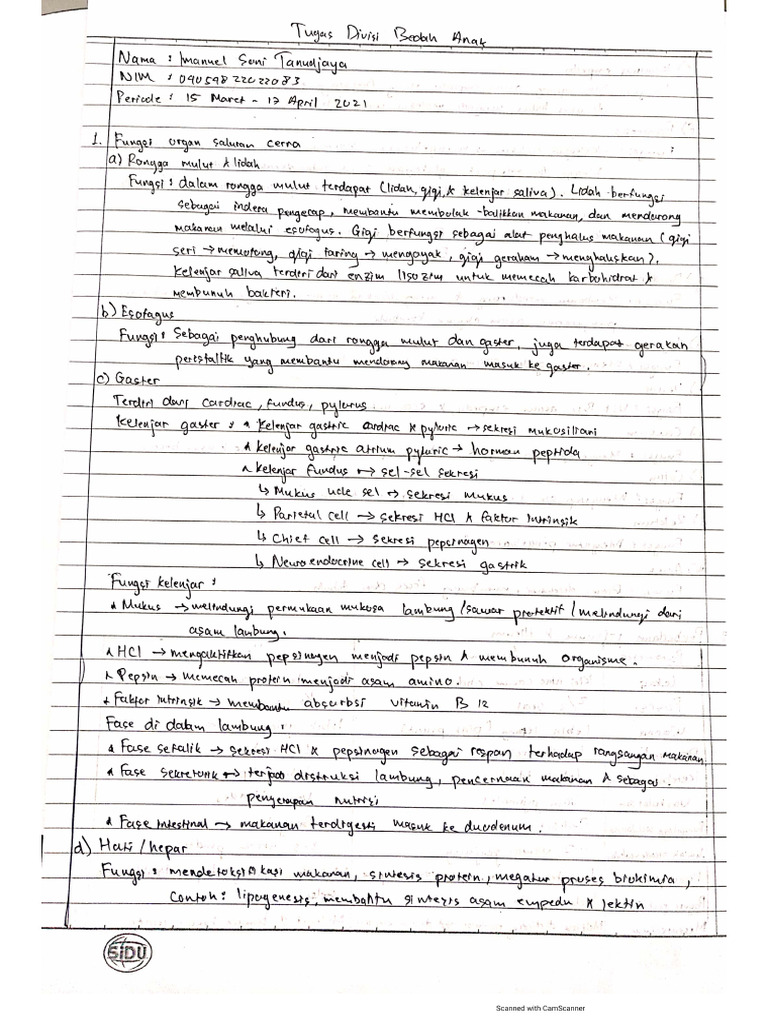 Tugas Divisi Bedah Anak
Nama : Imanuel Soni Tanudjaya
NIM : 04054822022083
Periode : 15 Maret - 17 April 2021
1. Fungsi organ saluran cerna
a) Rongga mulut & lidah
Fungsi : dalam rongga mulut terdapat (lidah, gigi, & kelenjar saliva). Lidah berfungsi
sebagai indera pengecap, membantu membolak-balikkan makanan, dan mendorong
makanan melalui esofagus. Gigi berfungsi sebagai alat penghalus makanan (gigi
seri → memotong, gigi taring → mengoyak, gigi geraham → menghaluskan).
Kelenjar saliva terdiri dari enzim lisozim untuk memecah karbohidrat &
membunuh bakteri.
b) Esofagus
Fungsi : Sebagai penghubung dari rongga mulut dan gaster, juga terdapat gerakan
peristaltik yang membantu mendorong makanan masuk ke gaster.
c) Gaster
Terdiri dari cardiac, fundus, pylurus
Kelenjar gaster : * Kelenjar gastric cardiac & pyluric → sekresi mukosiliari
* Kelenjar gastric atrium pyluric → hormon peptida
* Kelenjar fundus → sel-sel sekresi
↳ Mukus neck sel → sekresi mukus
↳ Parietal cell → sekresi HCl & faktor intrinsik
↳ Chief cell → sekresi pepsinogen
↳ Neuroendocrine cell → sekresi gastrik
Fungsi kelenjar :
* Mukus → melindungi permukaan mukosa lambung / sawar protektif / melindungi dari
asam lambung.
* HCl → mengaktifkan pepsinogen menjadi pepsin & membunuh organisme.
* Pepsin → memecah protein menjadi asam amino.
* Faktor intrinsik → membantu absorbsi vitamin B 12
Fase di dalam lambung :
* Fase sefalik → sekresi HCl & pepsinogen sebagai respon terhadap rangsangan makanan
* Fase sekretorik → terjadi distruksi lambung, pencernaan makanan & sebagai
penyerapan nutrisi
* Fase intestinal → makanan terdigesti masuk ke duodenum.
d) Hati / hepar
Fungsi : mendetoksifikasi makanan, sintesis protein, megatur proses biokimia,
Contoh : lipogenesis, membantu sintesis asam empedu & lektin
SiDU
Scanned with CamScanner